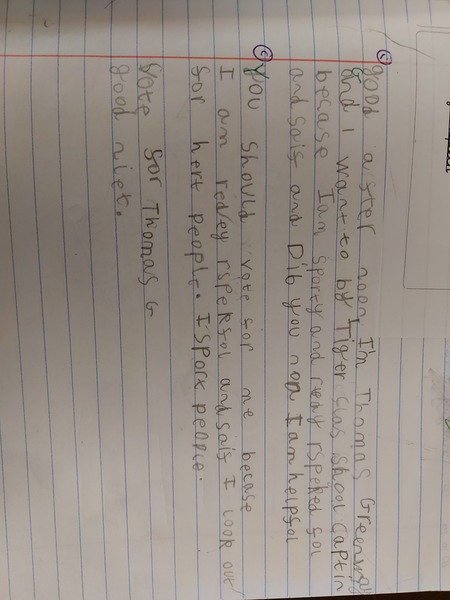 good after noon I'm Thomas Greenway
and I want to by Tiger clas shool captin
becase I am sporty and redy rspeked fol
and saif and Dib you non I am helpfol
you should vote for me becase
I am redey rspekfol and saif I look out
for hert people. I sporx people.
Vote for Thomas G
good niet.